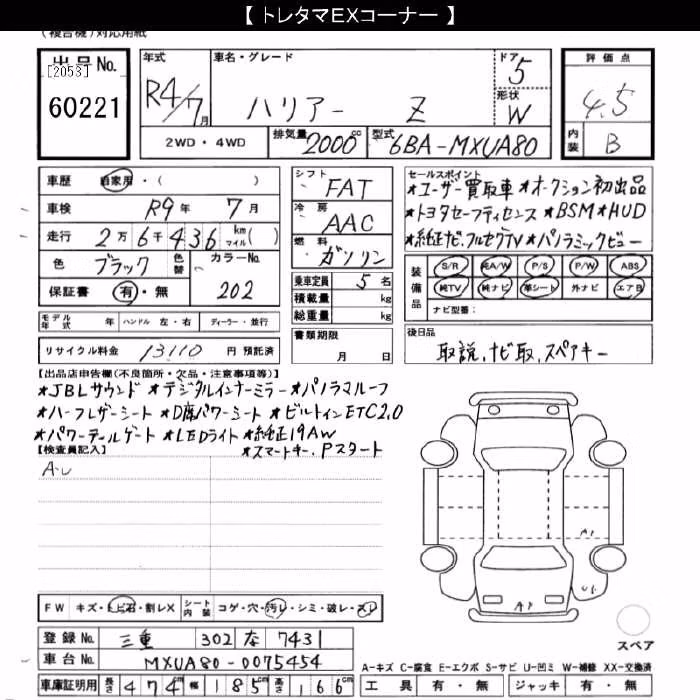 【 トレタマEXコーナー 】
(複合機)対応用紙
出品No.
[2053]
60221
年式
R4/7月
車名・グレード
ハリアー Z
ドア
5
形状
W
評価点
4.5
内装
B
2WD・4WD
排気量 2000cc
型式 6BA-MXUA80
車歴 自家用・( )
車検 R9年 7月
走行 2万6千436 km マイル( )
色 ブラック
色替
カラーNo. 202
保証書 有・無
モデル年式 年 ハンドル 左・右 ディーラー・並行
リサイクル料金 13110 円 預託済
シフト FAT
冷房 AAC
燃料 ガソリン
乗車定員 5名
積載量 kg
総重量 kg
書類期限
月 日
セールスポイント
★ユーザー買取車 ★オークション初出品
★トヨタセーフティセンス ★BSM★HUD
★純正ナビ.フルセグTV ★パノラミックビュー
装備品
S/R 純A/W P/S P/W ABS
純TV 純ナビ 革シート 外ナビ エアB
ナビ型番:
後日品
取説、ナビ取、スペアキー
【出品店申告欄(不良箇所・欠品・注意事項等)】
★JBLサウンド ★デジタルインナーミラー ★パノラマルーフ
★ハーフレザーシート ★D席パワーシート ★ビルトインETC2.0
★パワーテールゲート ★LEDライト ★純正19AW
★スマートキー.Pスタート
【検査員記入】
A・U
FW キズ・トビ石・割レX シート内装 コゲ・穴・汚レ・シミ・破レ・スレ
登録No. 三重 302 な 7431
車台No. MXUA80-0075454
車庫証明用 長さ 474cm 幅 185cm 高さ 166cm
A1
U1
A1
スペア
A-キズ C-腐食 E-エクボ S-サビ U-凹ミ W-補修 XX-交換済
工具 有・無 ジャッキ 有・無